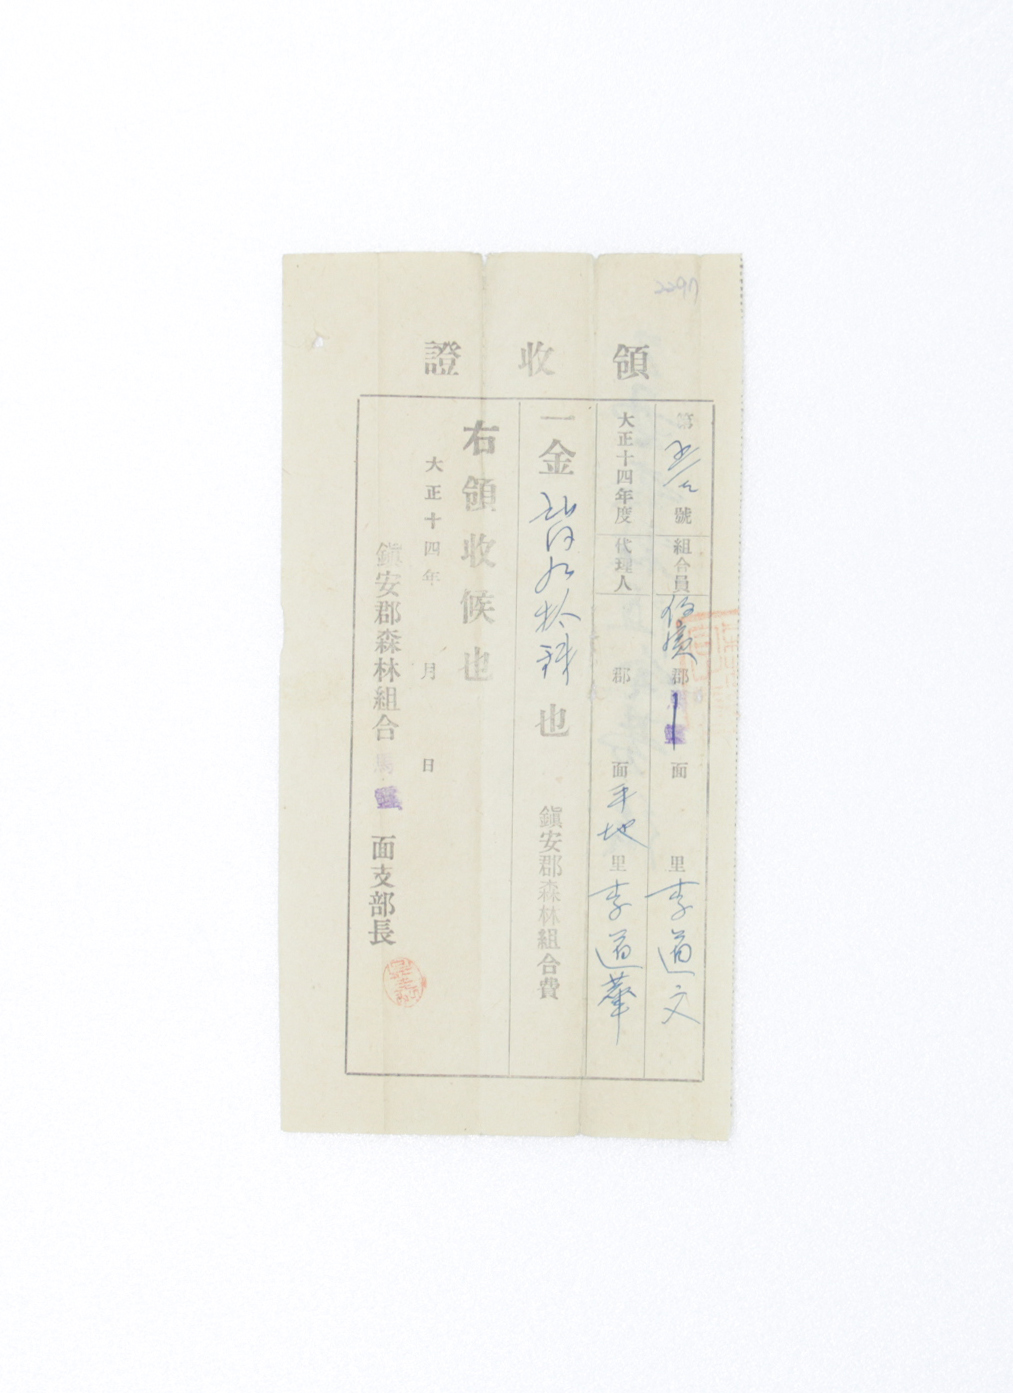 2297
領收證
第 號 組合員 郡 面 里 李道文
大正十四年度 代理人 郡 面 平地里 李道華
一金 九拾錢也 鎭安郡森林組合費
右領收候也
大正十四年 月 日
鎭安郡森林組合馬靈面支部長